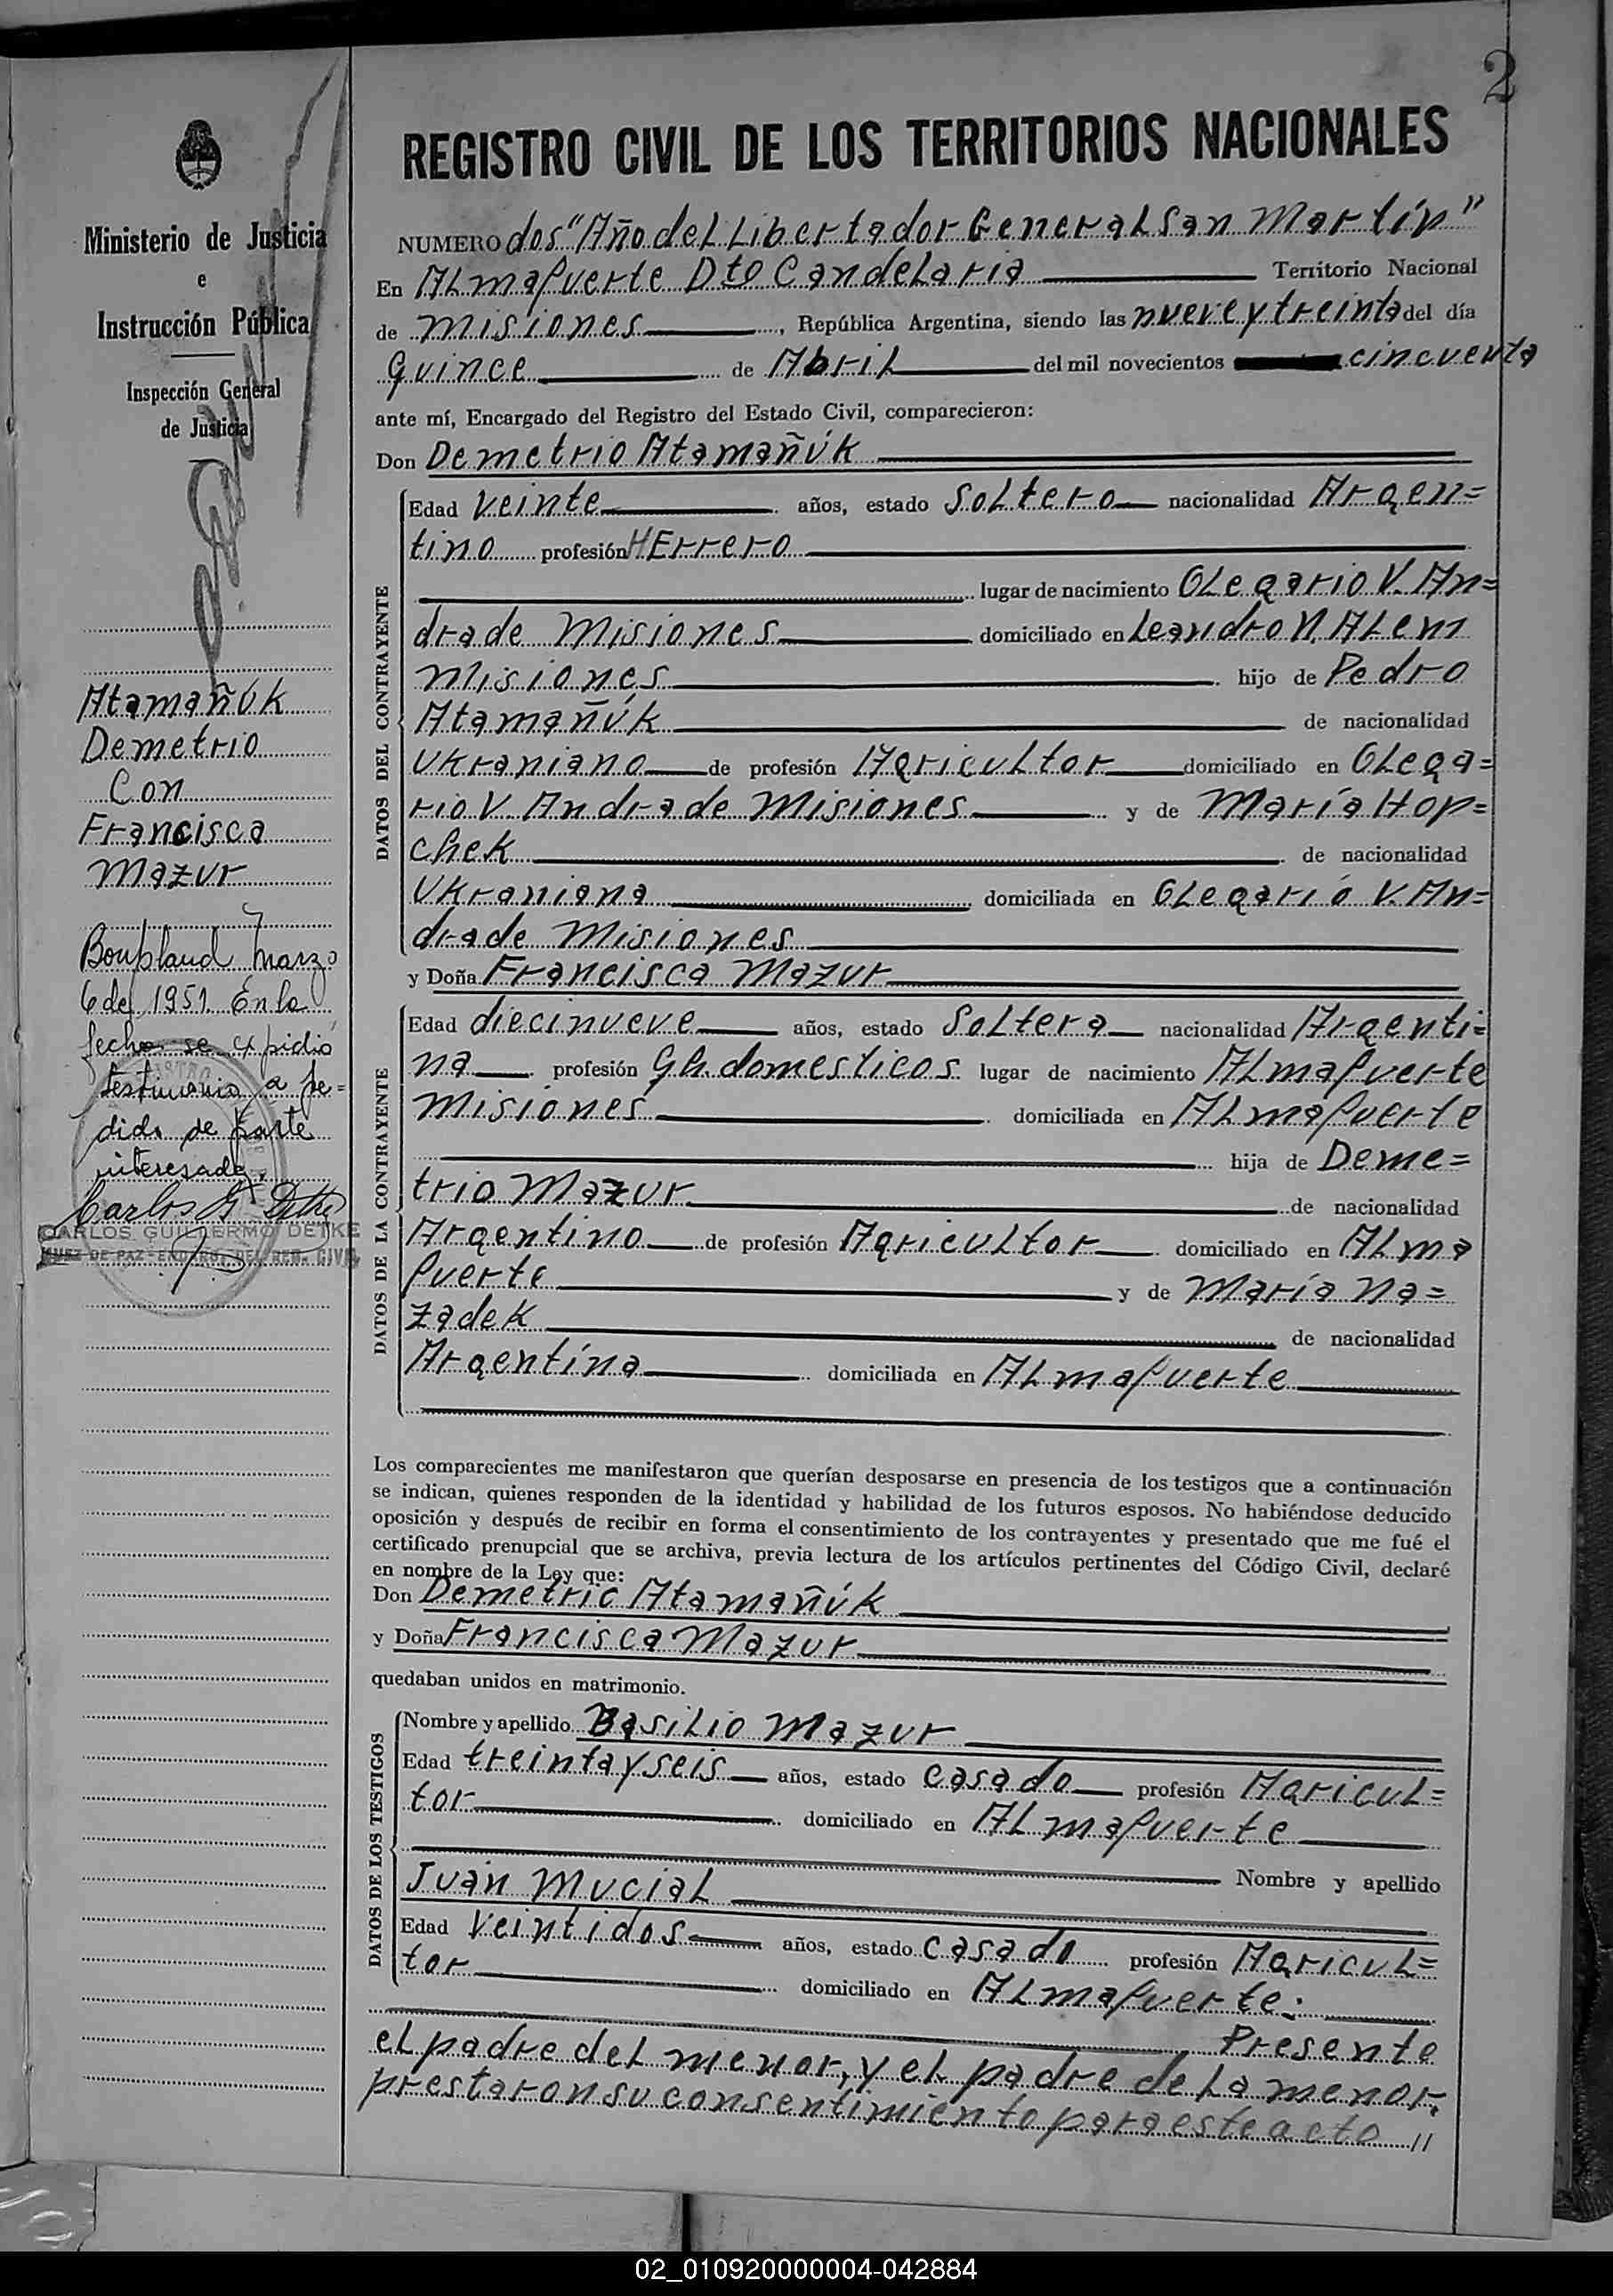 2
Ministerio de Justicia
e
Instrucción Pública
Inspección General
de Justicia
Atamañúk
Demetrio
Con
Francisca
Mazur
Bonpland Marzo
6 de 1951. En la
fecha se expidió
testimonio a pe=
dido de parte
interesada,
Carlos G. Detke
CARLOS GUILLERMO DETKE
JUEZ DE PAZ - ENCARG. DEL REG. CIVIL
REGISTRO CIVIL DE LOS TERRITORIOS NACIONALES
NUMERO dos "Año del Libertador General San Martín"
En Almafuerte Dto Candelaria Territorio Nacional
de Misiones, República Argentina, siendo las nueve y treinta del día
Quince de Abril del mil novecientos cincuenta
ante mí, Encargado del Registro del Estado Civil, comparecieron:
Don Demetrio Atamañúk
DATOS DEL CONTRAYENTE
Edad veinte años, estado Soltero nacionalidad Argen=
tino profesión HErrero
lugar de nacimiento Olegario V. An=
drade Misiones domiciliado en Leandro N. Alem
Misiones hijo de Pedro
Atamañúk de nacionalidad
Ukraniano de profesión Agricultor domiciliado en Olega=
rio V. Andrade Misiones y de María Hop=
chek de nacionalidad
Ukraniana domiciliada en Olegario V. An=
drade Misiones
y Doña Francisca Mazur
DATOS DE LA CONTRAYENTE
Edad diecinueve años, estado Soltera nacionalidad Argenti=
na profesión Qh. domesticos lugar de nacimiento Almafuerte
Misiones domiciliada en Almafuerte
hija de Deme=
trio Mazur de nacionalidad
Argentino de profesión Agricultor domiciliado en Alma
fuerte y de María Na=
zadek de nacionalidad
Argentina domiciliada en Almafuerte
Los comparecientes me manifestaron que querían desposarse en presencia de los testigos que a continuación
se indican, quienes responden de la identidad y habilidad de los futuros esposos. No habiéndose deducido
oposición y después de recibir en forma el consentimiento de los contrayentes y presentado que me fué el
certificado prenupcial que se archiva, previa lectura de los artículos pertinentes del Código Civil, declaré
en nombre de la Ley que:
Don Demetrio Atamañúk
y Doña Francisca Mazur
quedaban unidos en matrimonio.
DATOS DE LOS TESTIGOS
Nombre y apellido Basilio Mazur
Edad treinta y seis años, estado casado profesión Agricul=
tor domiciliado en Almafuerte
Nombre y apellido
Juan Mucial
Edad Veintidos años, estado casado profesión Agricul=
tor domiciliado en Almafuerte.
Presente
el padre del menor, y el padre de la menor,
prestaron su consentimiento para este acto //
02_010920000004-042884